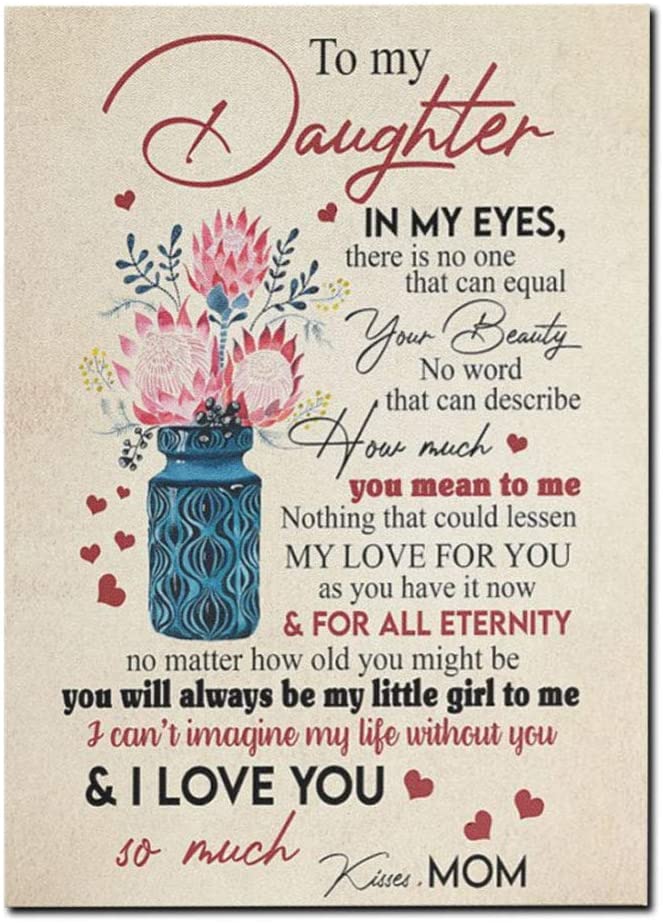 To my
Daughter
IN MY EYES,
there is no one
that can equal
Your Beauty
No word
that can describe
How much
you mean to me
Nothing that could lessen
MY LOVE FOR YOU
as you have it now
& FOR ALL ETERNITY
no matter how old you might be
you will always be my little girl to me
I can't imagine my life without you
& I LOVE YOU
so much
Kisses, MOM